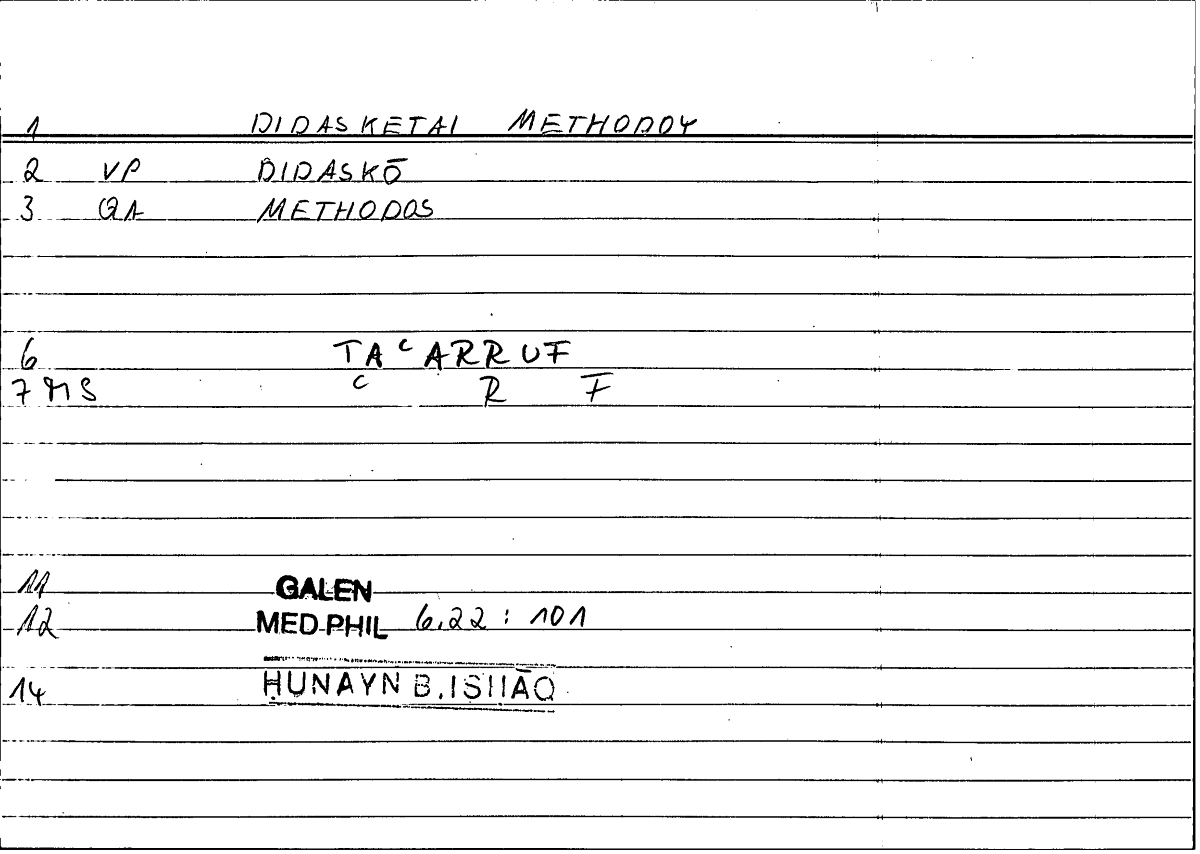 1 DIDASKETAI METHODOY
2 VP DIDASKŌ
3 GA METHODOS
6 TAᶜARRUF
7 MS ᶜ R F
11 GALEN
12 MED.PHIL 6.22 : 101
14 ḤUNAYN B.ISḤĀQ